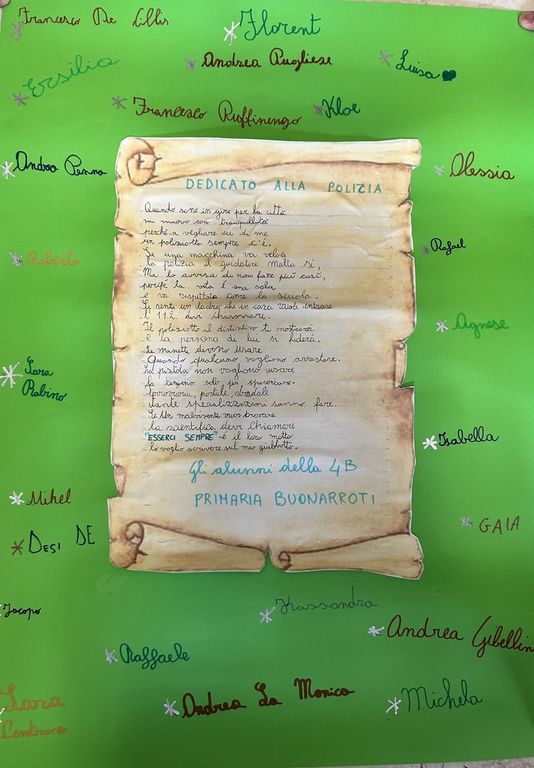 Francesco De Lillis
Florent
Ersilia
Andrea Pugliese
Luisa
Francesco Ruffinengo
Kloe
Andrea Penna
Alessia
DEDICATO ALLA POLIZIA
Quando sono in giro per la città
mi muovo con tranquillità
perché a vegliare su di me
un poliziotto sempre c'è.
Se una macchina va veloce
la polizia il guidatore multa sì,
Ma lo avvisa di non fare più così,
perché la vita è una sola
e va rispettata come la scuola.
Se senti un ladro che in casa vuole entrare
il 112 devi chiammare.
Il poliziotto il distintivo ti mostrerà
e la persona di lui si fiderà.
Le manette devono usare
Quando qualcuno vogliono arrestare.
La pistola non vogliono usare
la tengono solo per spaventare.
ferroviaria, postale, stradale
tante specializzazioni sanno fare.
Se un malvivente vuoi trovare
la scientifica devi chiamare
"ESSERCI SEMPRE" è il loro motto
lo voglio scrivere sul mio giubbotto.
Gli alunni della 4B
PRIMARIA BUONARROTI
Rafael
Roberto
Agnese
Sara
Rabino
Isabella
Mihel
GAIA
DESI DE
Jacopo
Kassandra
Andrea Gibellin
Raffaele
Sara
Andrea La Monica
Michela